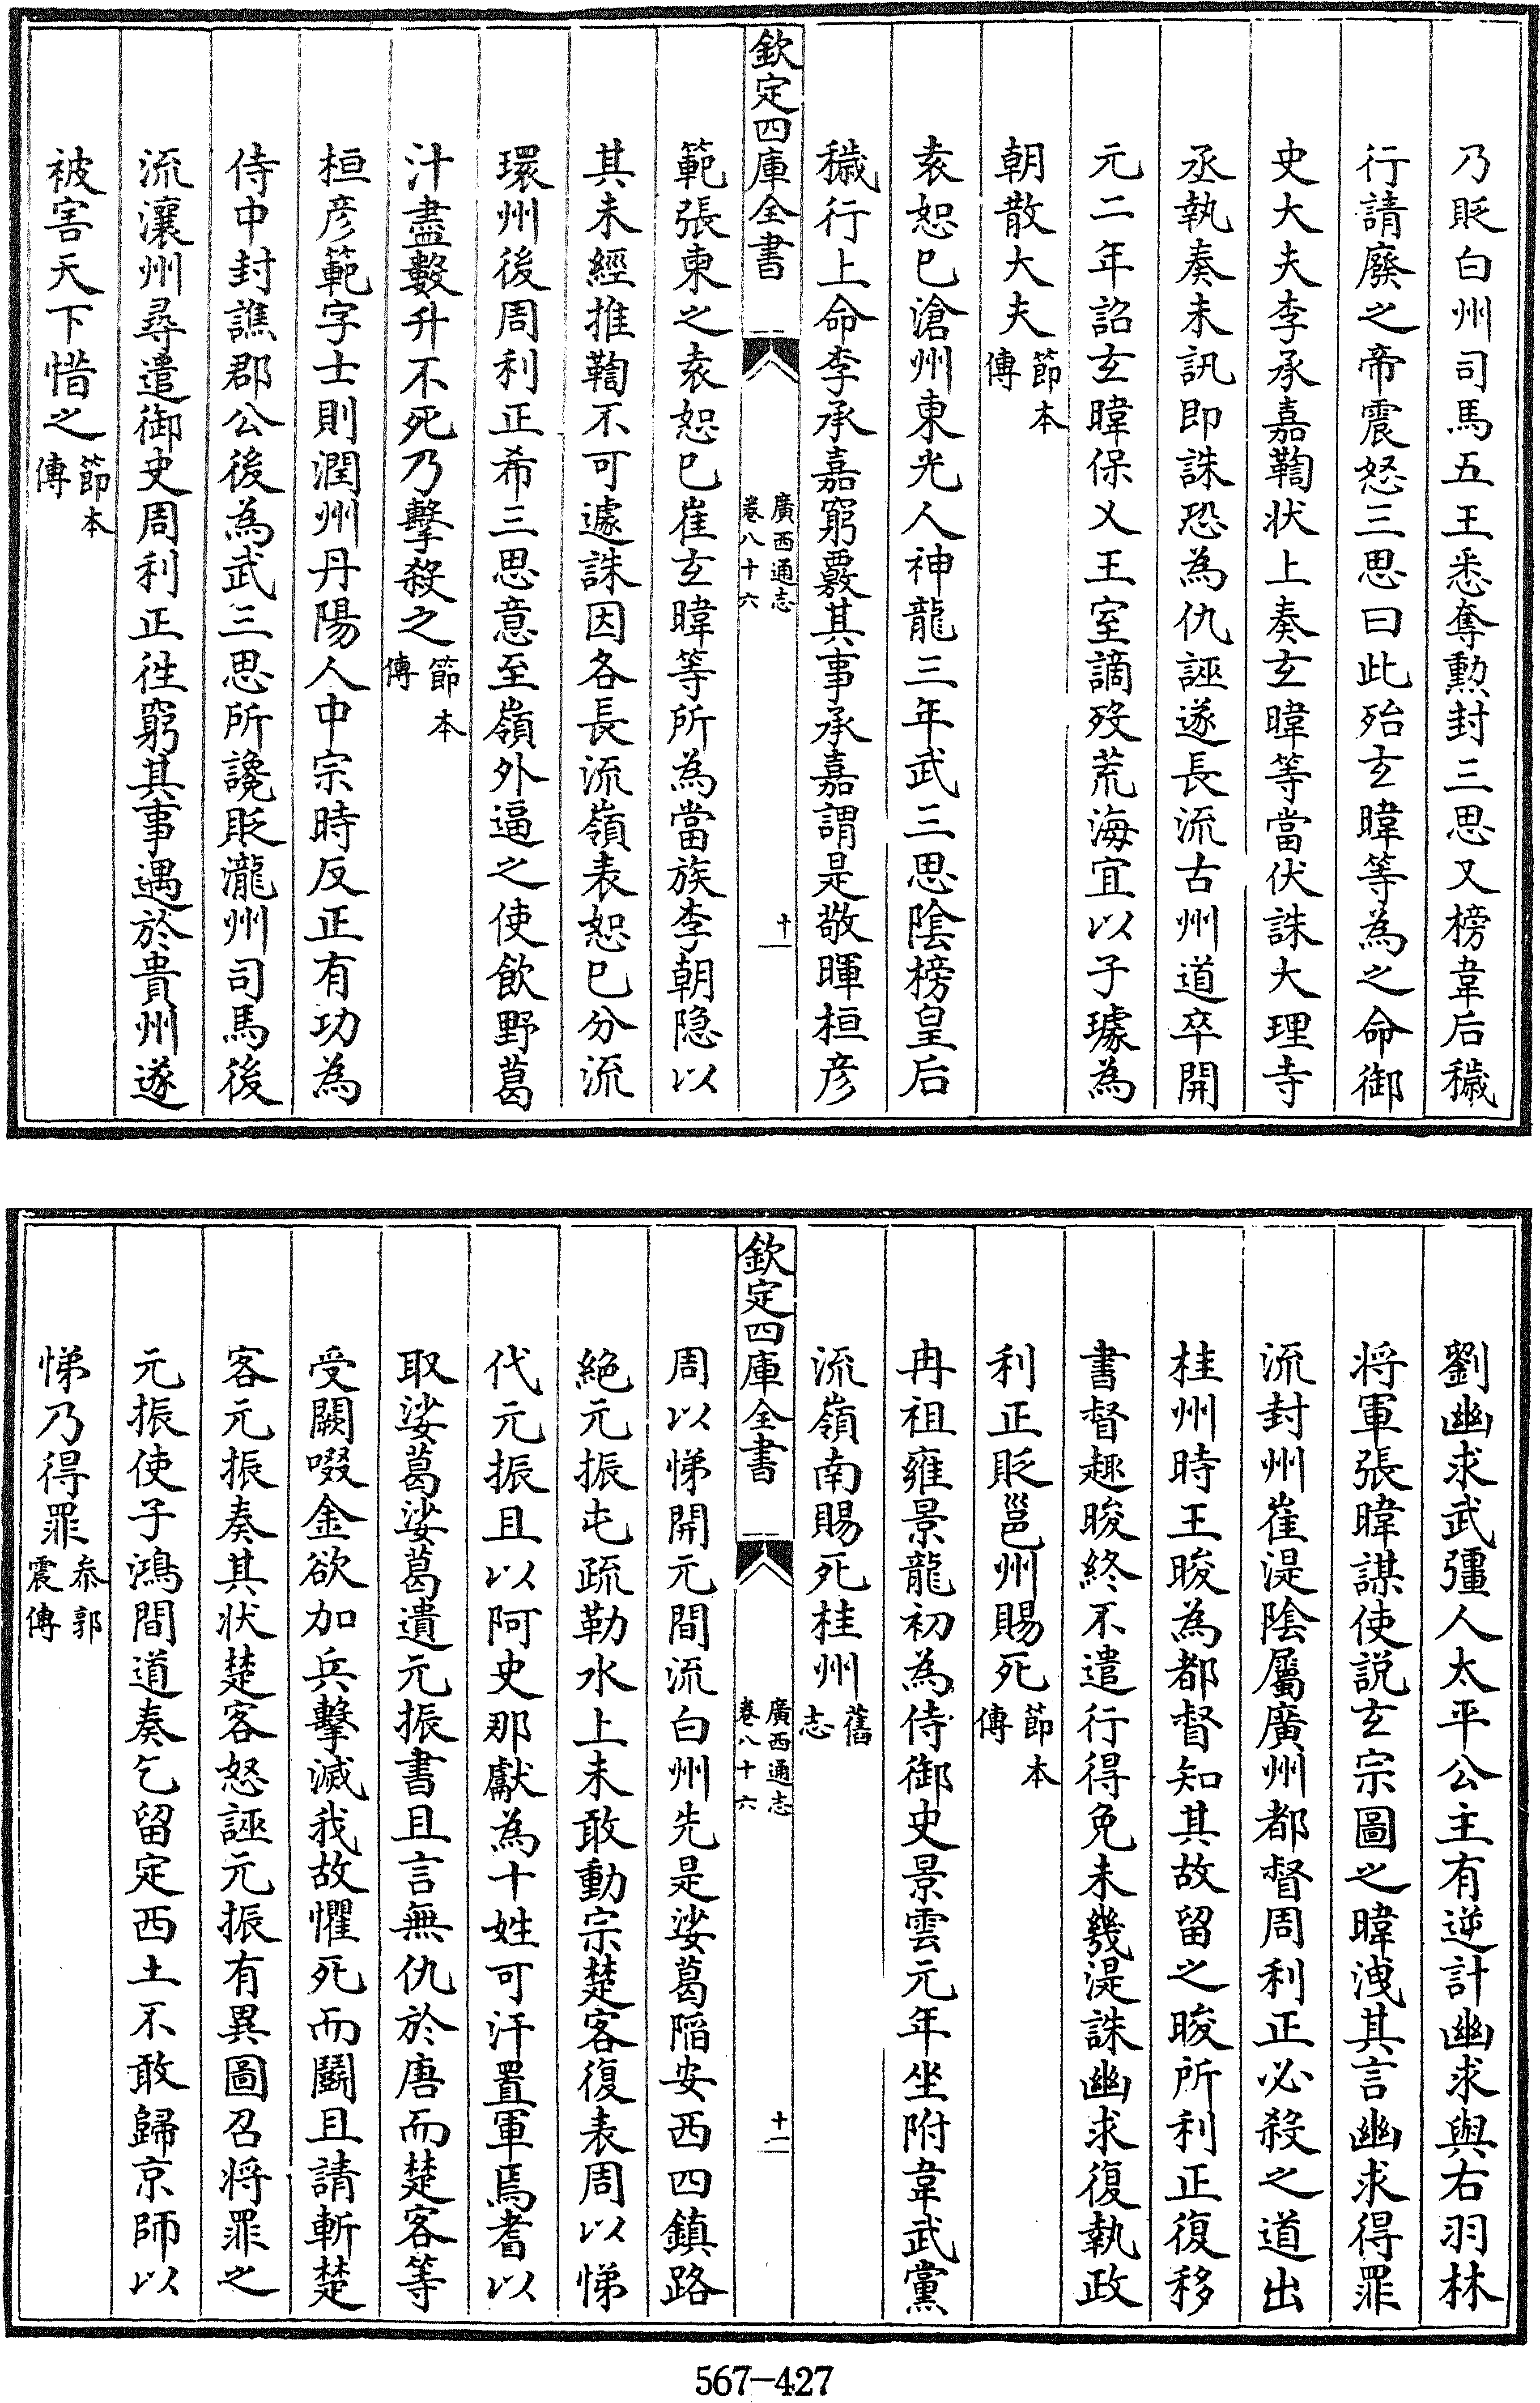 乃貶白州司馬五王悉奪勲封三思又榜韋后穢
行請廢之帝震怒三思曰此殆玄暐等為之命御
史大夫李承嘉鞫状上奏玄暐等當伏誅大理寺
丞執奏未訊即誅恐為仇誣遂長流古州道卒開
元二年詔玄暐保乂王室謫殁荒海宜以子璩為
朝散大夫節本傳
袁恕已滄州東光人神龍三年武三思陰榜皇后
穢行上命李承嘉窮覈其事承嘉謂是敬暉桓彦
欽定四庫全書
廣西通志
卷八十六
十一
範張柬之袁恕已崔玄暐等所為當族李朝隐以
其未經推鞫不可遽誅因各長流嶺表恕已分流
環州後周利正希三思意至嶺外逼之使飲野葛
汁盡數升不死乃擊殺之節本傳
桓彦範字士則潤州丹陽人中宗時反正有功為
侍中封譙郡公後為武三思所讒貶瀧州司馬後
流瀼州尋遣御史周利正徃窮其事遇於貴州遂
被害天下惜之節本傳
劉幽求武彊人太平公主有逆計幽求與右羽林
将軍張暐謀使説玄宗圖之暐洩其言幽求得罪
流封州崔湜陰屬廣州都督周利正必殺之道出
桂州時王晙為都督知其故留之晙所利正復移
書督趣晙終不遣行得免未幾湜誅幽求復執政
利正貶邕州賜死節本傳
冉祖雍景龍初為侍御史景雲元年坐附韋武黨
流嶺南賜死桂州舊志
欽定四庫全書
廣西通志
卷八十六
十二
周以悌開元間流白州先是娑葛䧟安西四鎮路
絶元振屯疏勒水上未敢動宗楚客復表周以悌
代元振且以阿史那獻為十姓可汗置軍焉耆以
取娑葛娑葛遺元振書且言無仇於唐而楚客等
受闕啜金欲加兵擊滅我故懼死而鬬且請斬楚
客元振奏其状楚客怒誣元振有異圖召将罪之
元振使子鴻間道奏乞留定西土不敢歸京師以
悌乃得罪叅郭震傳
567-427